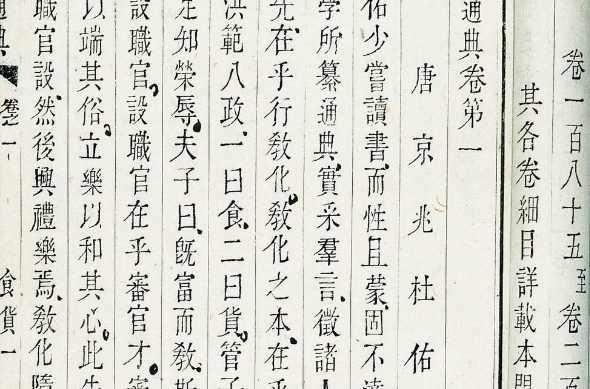 卷一百八十五至卷二
其各卷細目詳載本
通典卷第一
唐京兆杜佑
佑少嘗讀書、而性且蒙、固不達
學所纂通典、實采羣言、徵諸
先在乎行教化、教化之本、在乎
洪範八政、一曰食、二曰貨、管子
足知榮辱、夫子曰、既富而教、斯
設職官、設職官在乎審官才、審
以端其俗、立樂以和其心、此先
職官設、然後興禮樂焉、教化隳
通典 卷一 食貨一